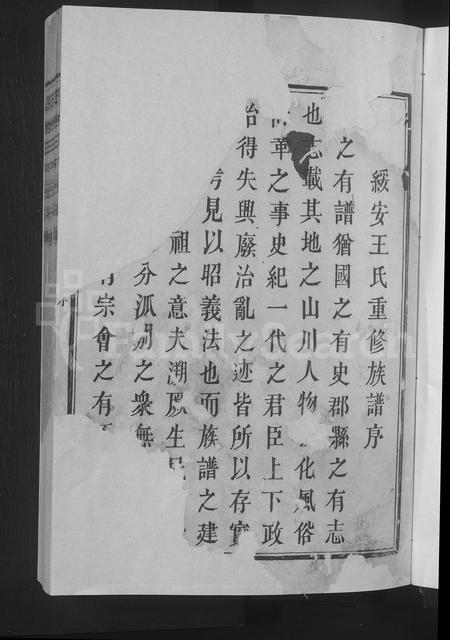 綏安王氏重修族譜序
之有譜猶國之有史郡縣之有志
也志載其地之山川人物 化風俗
革之事史紀一代之君臣上下政
治得失興廢治亂之迹皆所以存實
見以昭義法也而族譜之建
祖之意夫溯厥生民
分派別之衆無
宗會之有
序
FamilySearch